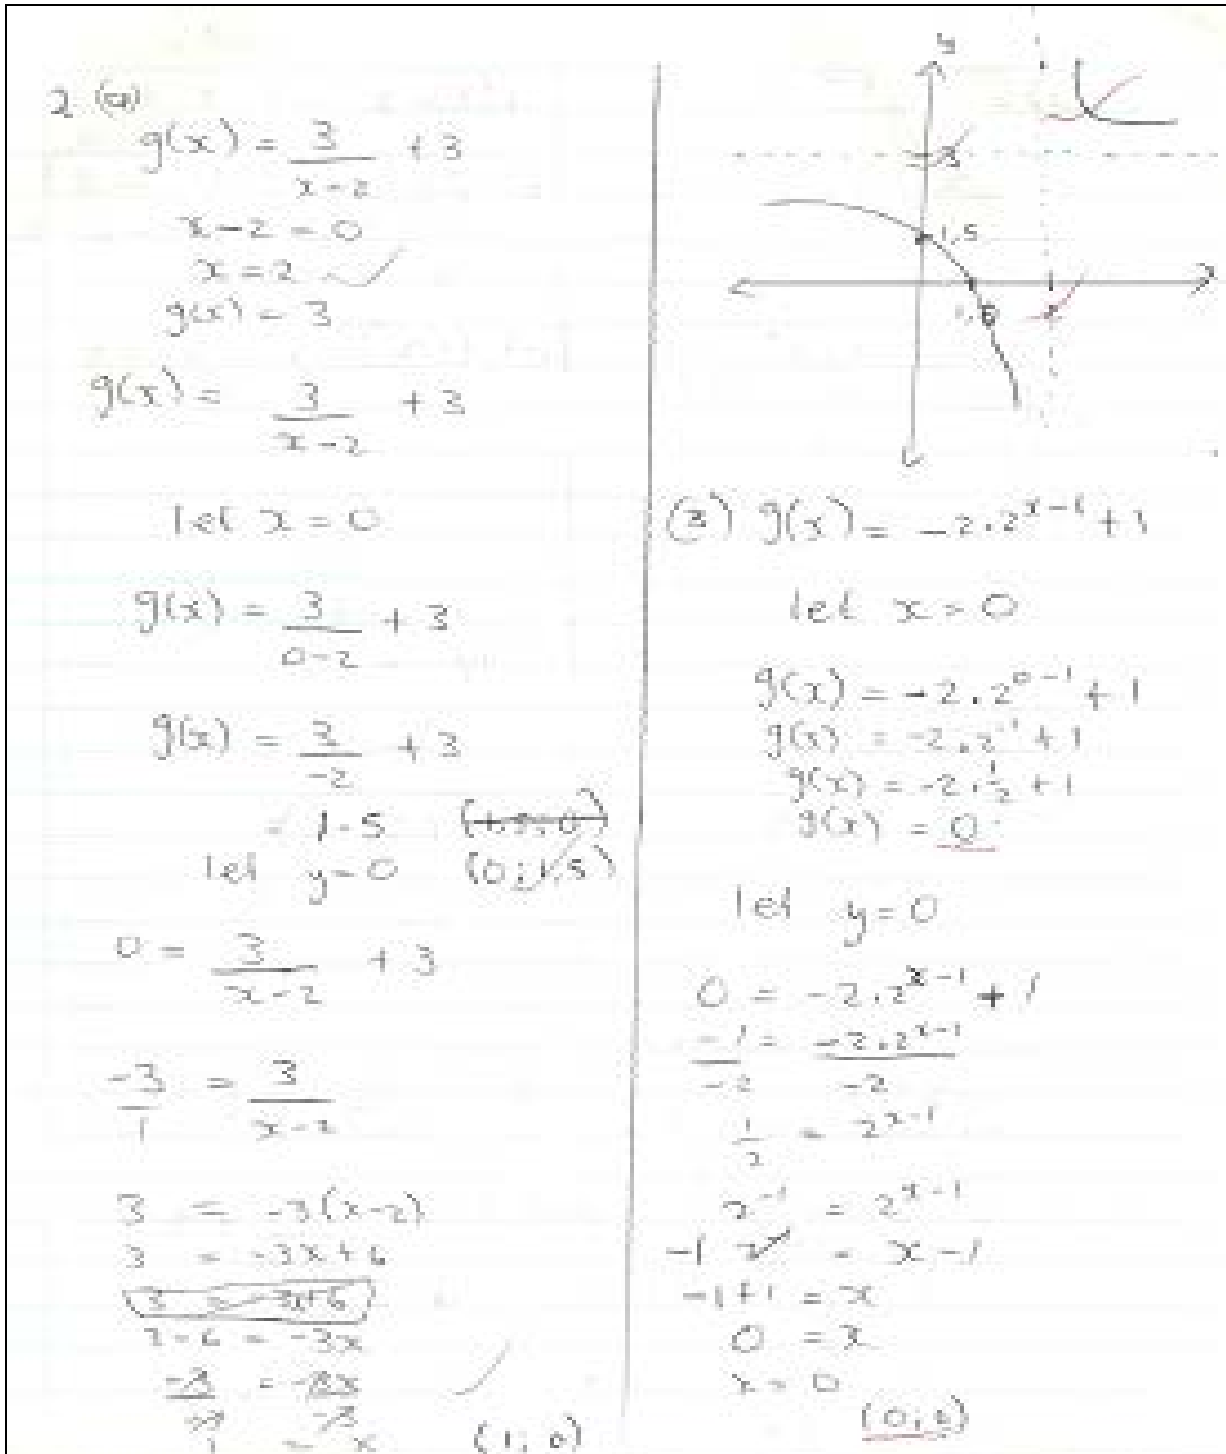 2 (a)
g(x) = 3/(x-2) + 3
x-2 = 0
x = 2
g(x) = 3
g(x) = 3/(x-2) + 3
let x = 0
g(x) = 3/(0-2) + 3
g(x) = 3/-2 + 3
= 1.5 (1.5;0)
let y=0 (0;1,5)
0 = 3/(x-2) + 3
-3/1 = 3/(x-2)
3 = -3(x-2)
3 = -3x+6
3 = -3x+6
3-6 = -3x
-3/-3 = -3x/-3
1 = x (1;0)
y
3
1,5
x
(3) g(x) = -2.2^(x-1) + 1
let x = 0
g(x) = -2.2^(0-1) + 1
g(x) = -2.2^(-1) + 1
g(x) = -2.1/2 + 1
g(x) = 0
let y = 0
0 = -2.2^(x-1) + 1
-1/-2 = -2.2^(x-1)/-2
1/2 = 2^(x-1)
2^(-1) = 2^(x-1)
-1 = x-1
-1+1 = x
0 = x
x = 0
(0;0)